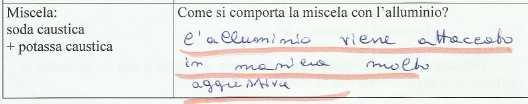 Miscela:
soda caustica
+ potassa caustica
Come si comporta la miscela con l'alluminio?
l'alluminio viene attaccato
in maniera molto
aggressiva